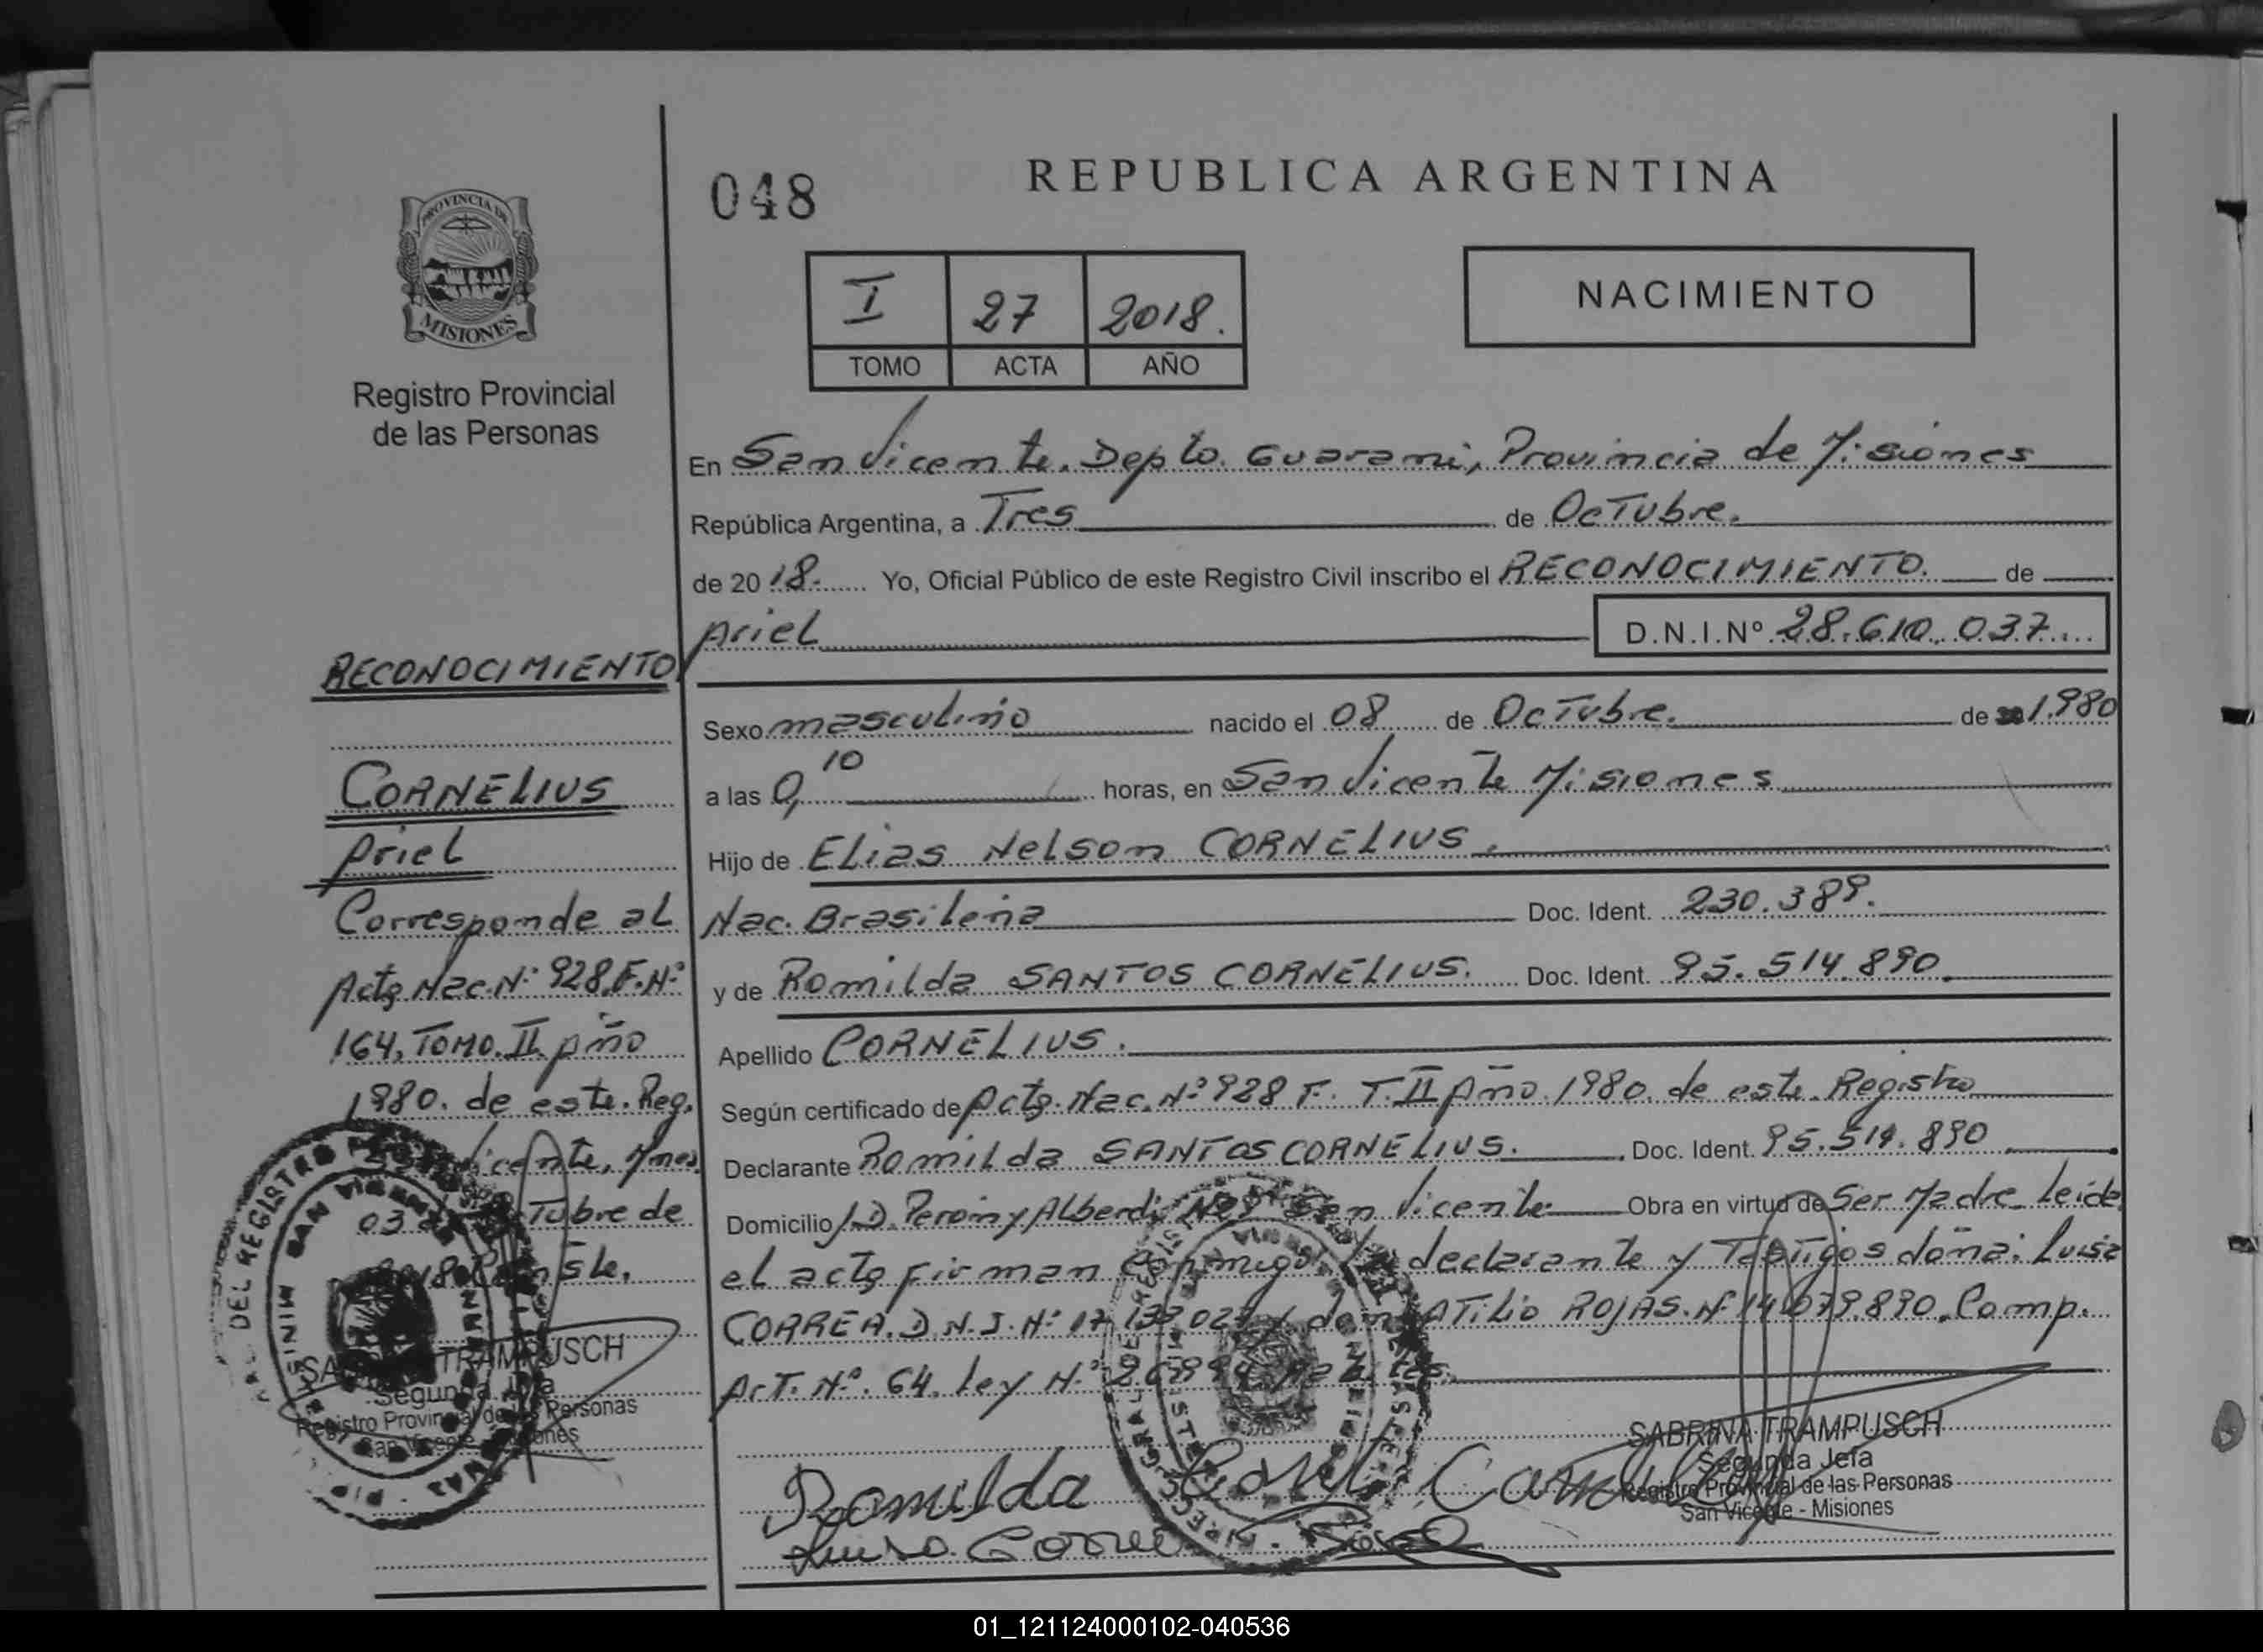 048
REPUBLICA ARGENTINA
PROVINCIA DE
MISIONES
Registro Provincial
de las Personas
I 27 2018.
TOMO ACTA AÑO
NACIMIENTO
En San Vicente, Depto. Guarani, Provincia de Misiones
República Argentina, a Tres de Octubre.
de 2018. Yo, Oficial Público de este Registro Civil inscribo el RECONOCIMIENTO. de
Ariel D.N.I.Nº 28.610.037
Sexo masculino nacido el 08 de Octubre. de 1.980
a las 0,10 horas, en San Vicente Misiones
Hijo de Elias Nelson CORNELIUS.
Nac. Brasileña Doc. Ident. 230.389.
y de Romilda SANTOS CORNELIUS. Doc. Ident. 95.514.890.
Apellido CORNELIUS.
Según certificado de Acta Nac. Nº 928 F. T. II Año 1980. de este Registro
Declarante Romilda SANTOS CORNELIUS. Doc. Ident. 95.514.890
Domicilio J.D. Peron y Alberdi San Vicente Obra en virtud de Ser Madre Leida
el acta firman conmigo declarante y Testigos doña: Luisa
CORREA. D.N.I. Nº 17 ATiLio ROJAS. Nº 14.079.890. Comp.
Art. Nº. 64. Ley Nº
RECONOCIMIENTO
CORNELIUS
Ariel
Corresponde al
Acta Nac. Nº 928, F. Nº
164, TOMO. II. Año
1980. de este Reg.
Vicente, Mnes
03 de Octubre de
2018. Conste.
SABRINA TRAMPUSCH
Segunda Jefa
Registro Provincial de las Personas
San Vicente - Misiones
Romilda
Luisa Correa
SABRINA TRAMPUSCH
Segunda Jefa
Registro Provincial de las Personas
San Vicente - Misiones
01_121124000102-040536